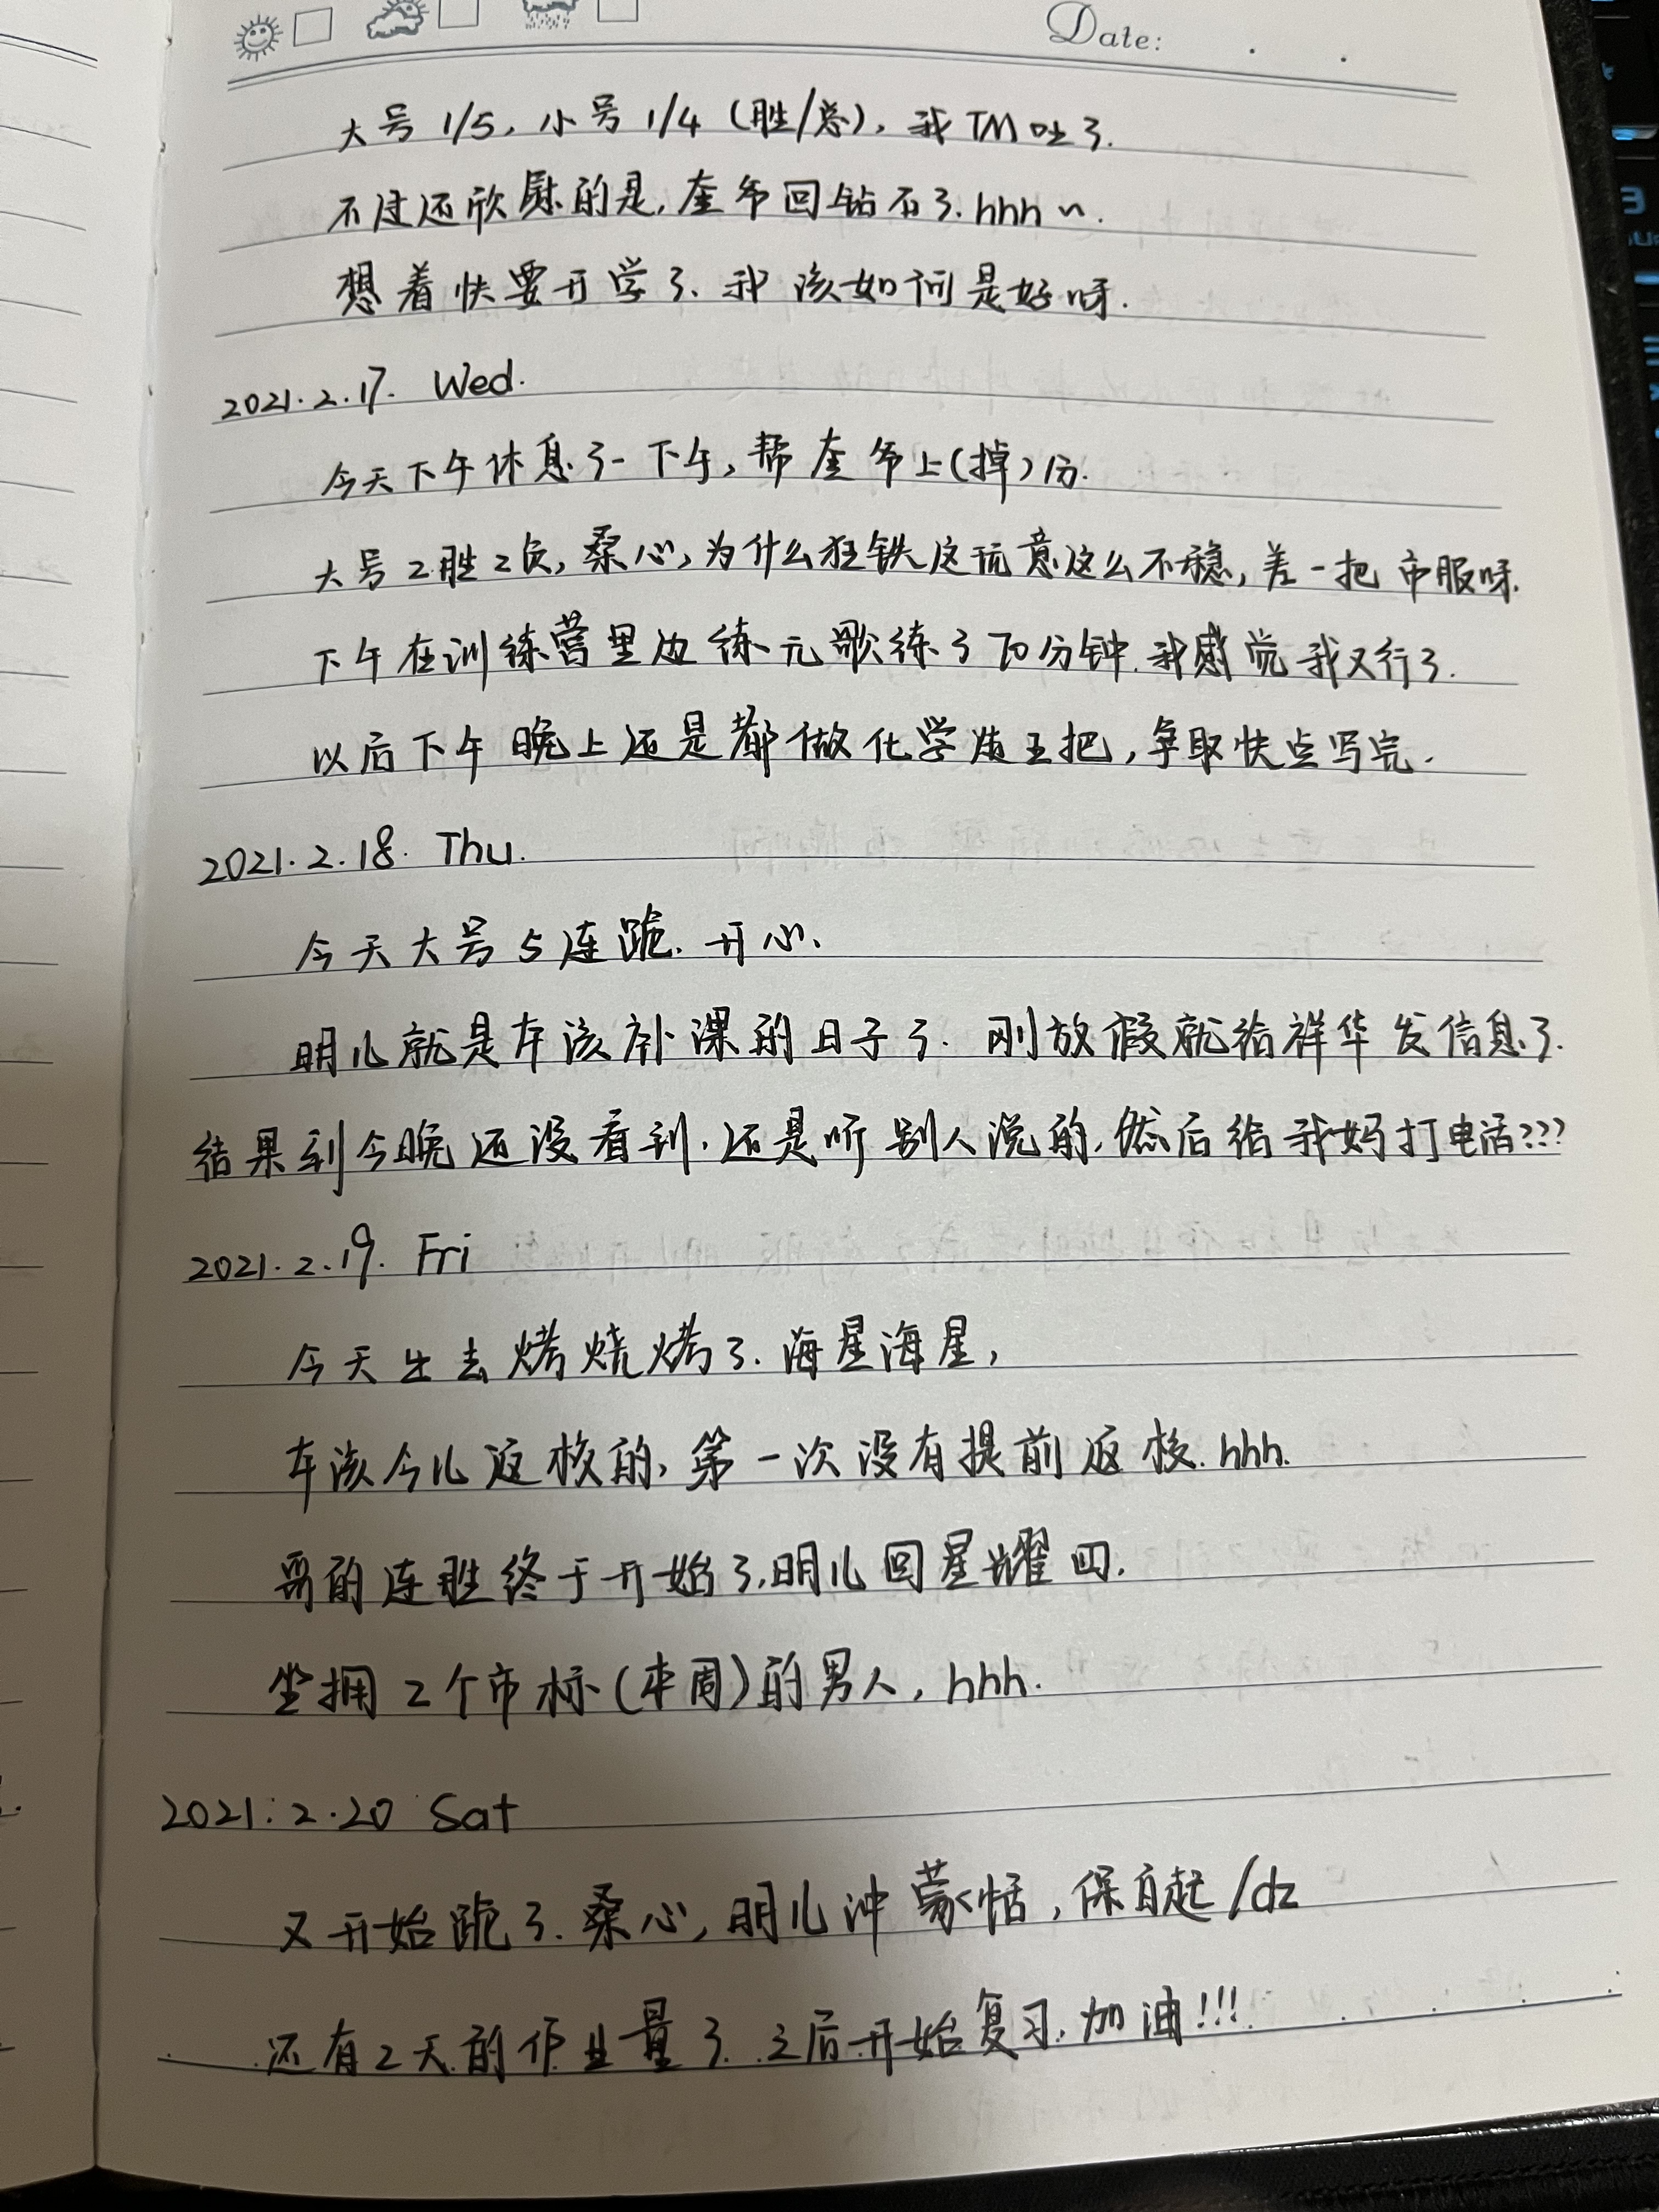 Date:
大号 1/5, 小号 1/4 (胜/总), 我TM吐了.
不过还欣慰的是, 奎爷回钻石了. hhh ~.
想着快要开学了. 我该如何是好呀.
2021.2.17. Wed.
今天下午休息了一下午, 帮奎爷上(掉)分.
大号2胜2负, 桑心, 为什么狂铁这玩意这么不稳, 差一把市服呀.
下午在训练营里边练元歌练了70分钟. 我感觉我又行了.
以后下午晚上还是都做化学焕王把, 争取快点写完.
2021.2.18. Thu.
今天大号5连跪. 开心.
明儿就是本该补课的日子了. 刚放假就给祥华发信息了.
结果到今晚还没看到. 还是听别人说的, 然后给我妈打电话???
2021.2.19. Fri
今天出去烤烧烤了. 海星海星,
本该今儿返校的, 第一次没有提前返校. hhh.
哥的连胜终于开始了, 明儿回星耀四.
坐拥2个市标(本周)的男人, hhh.
2021.2.20 Sat
又开始跪了. 桑心, 明儿冲蒙恬, 保自起/dz
还有2天的作业量了. 之后开始复习. 加油!!!